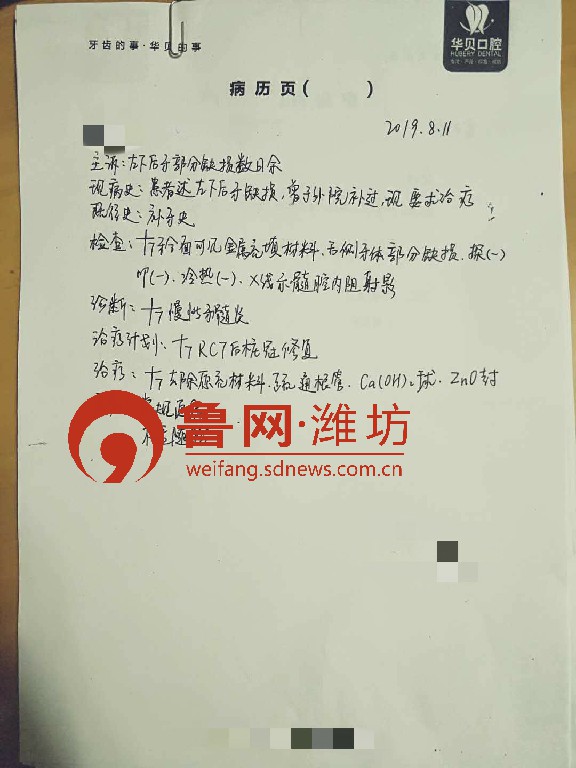 牙齿的事·华贝的事
华贝口腔
HUBERY DENTAL
病历页( )
2019.8.11
主诉:左下后牙部分缺损数日余
现病史:患者述左下后牙缺损,曾于外院补过,现要求治疗
既往史:补牙史
检查:7牙合面可见金属充填材料,舌侧牙体部分缺损.探(-)
叩(-).冷热(-).X线示髓腔内阻射影
诊断:7慢性牙髓炎
治疗计划:7RCT后桩冠修复
治疗:7去除原充材料.疏通根管.Ca(OH)2球.ZnO封
鲁网·潍坊
weifang.sdnews.com.cn